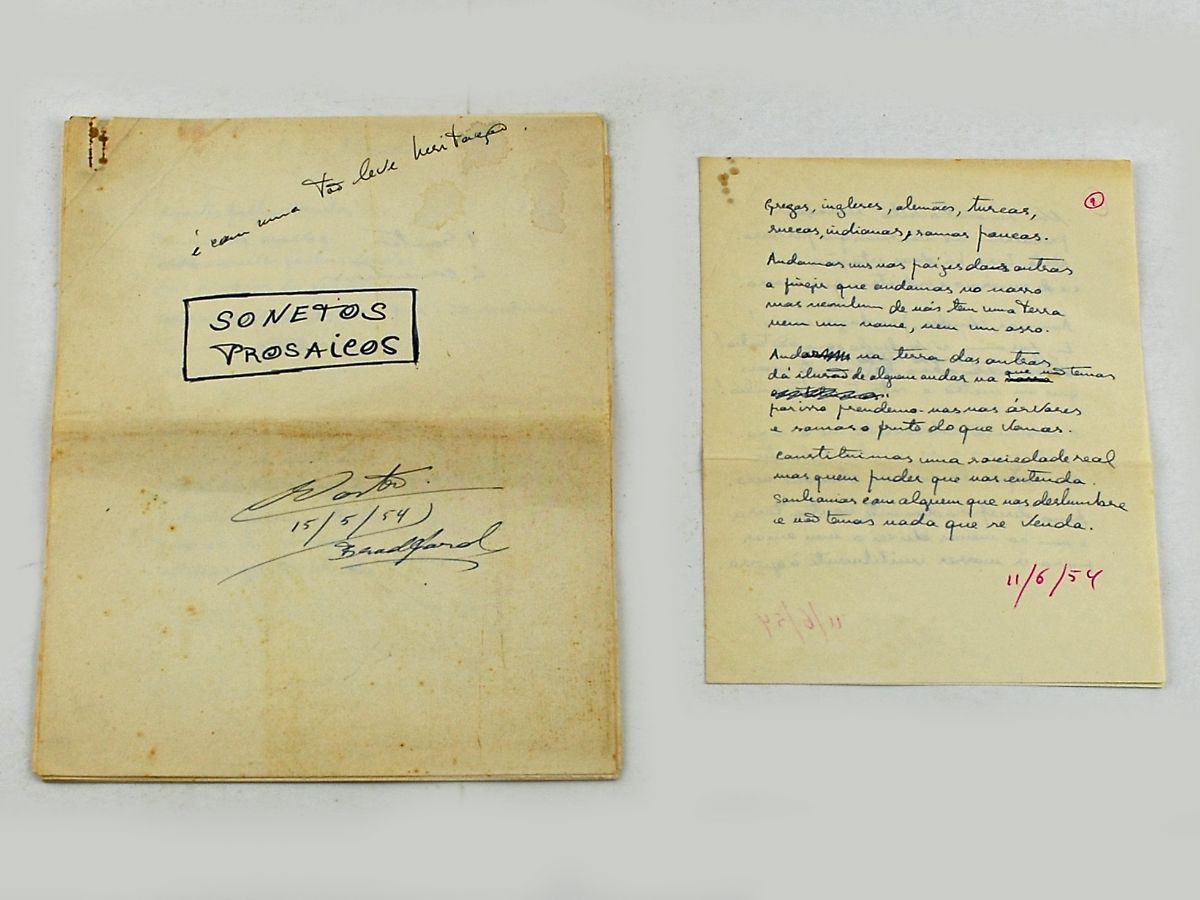 é com uma tão leve hesitação.
SONETOS
PROSAICOS
15/5/54)
Bradford
9
Gregos, ingleses, alemães, turcos,
suecos, indianos, somos poucos.
Andamos uns nos paizes dos outros
a fingir que andamos no nosso
mas nenhum de nós tem uma terra
nem um nome, nem um osso.
Andar na terra dos outros
dá ilusão de alguem andar na que não temos
por isso prendemo-nos nas árvores
e somos o fruto do que vemos.
Constituimos uma sociedade real
mas quem puder que nos entenda.
Sonhamos com alguem que nos deslumbre
e não temos nada que se venda.
11/6/54